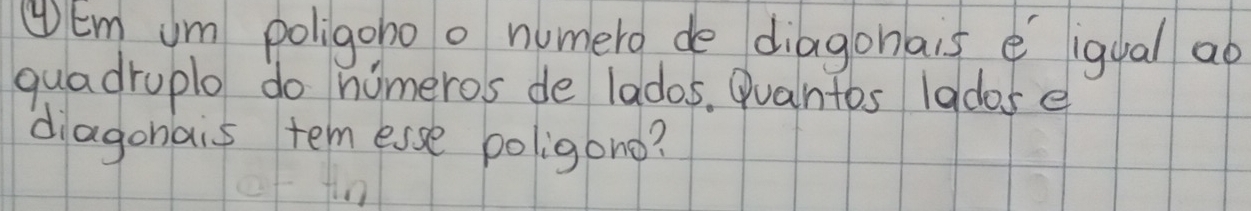 ④ Em um poligono o numero de diagonais é igual ao
quadruplo do números de lados. Quantos lados e
diagonais tem esse poligono?